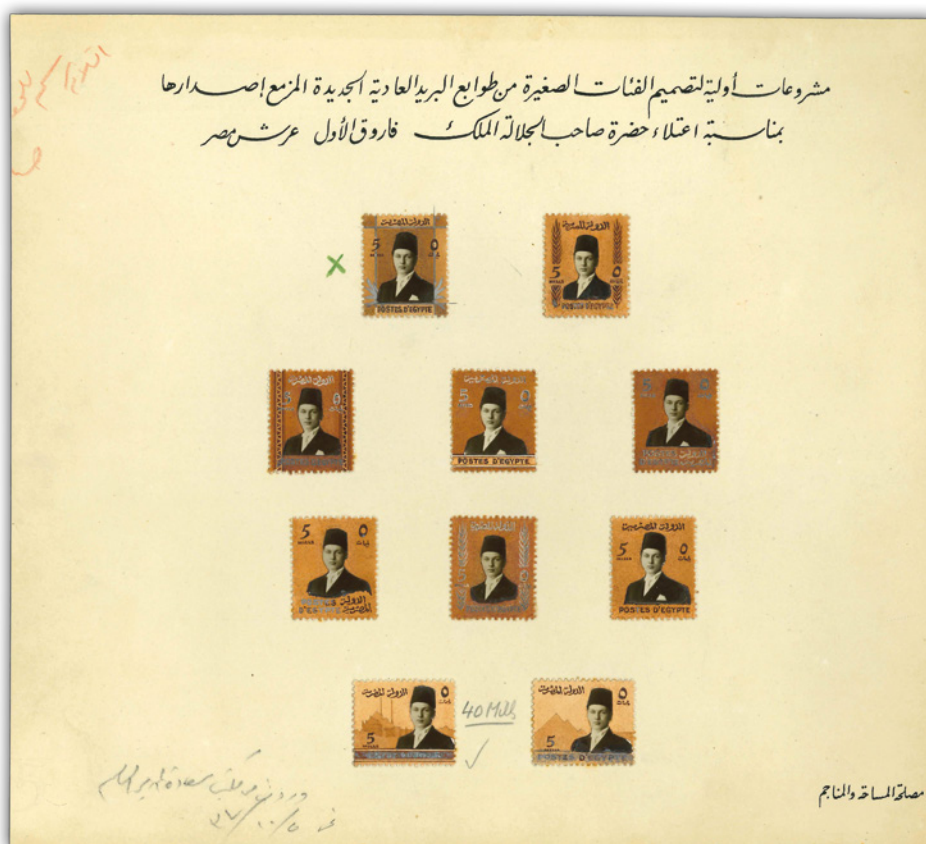 مشروعات أولية لتصميم الفئات الصغيرة من طوابع البريد العادية الجديدة المزمع إصدارها
بمناسبة اعتلاء حضرة صاحب الجلالة الملك فاروق الأول عرش مصر
الدولة المصرية
5 ٥
POSTES D'EGYPTE
الدولة المصرية
5 ٥
POSTES D'EGYPTE
الدولة المصرية
5 ٥
الدولة المصرية
5 ٥
POSTES D'EGYPTE
5 ٥
5 ٥
POSTES D'EGYPTE
الدولة المصرية
الدولة المصرية
5 ٥
POSTES D'EGYPTE
الدولة المصرية
٥
5
40 Mills
الدولة المصرية
٥
5
POSTES D'EGYPTE
مصلحة المساحة والمناجم